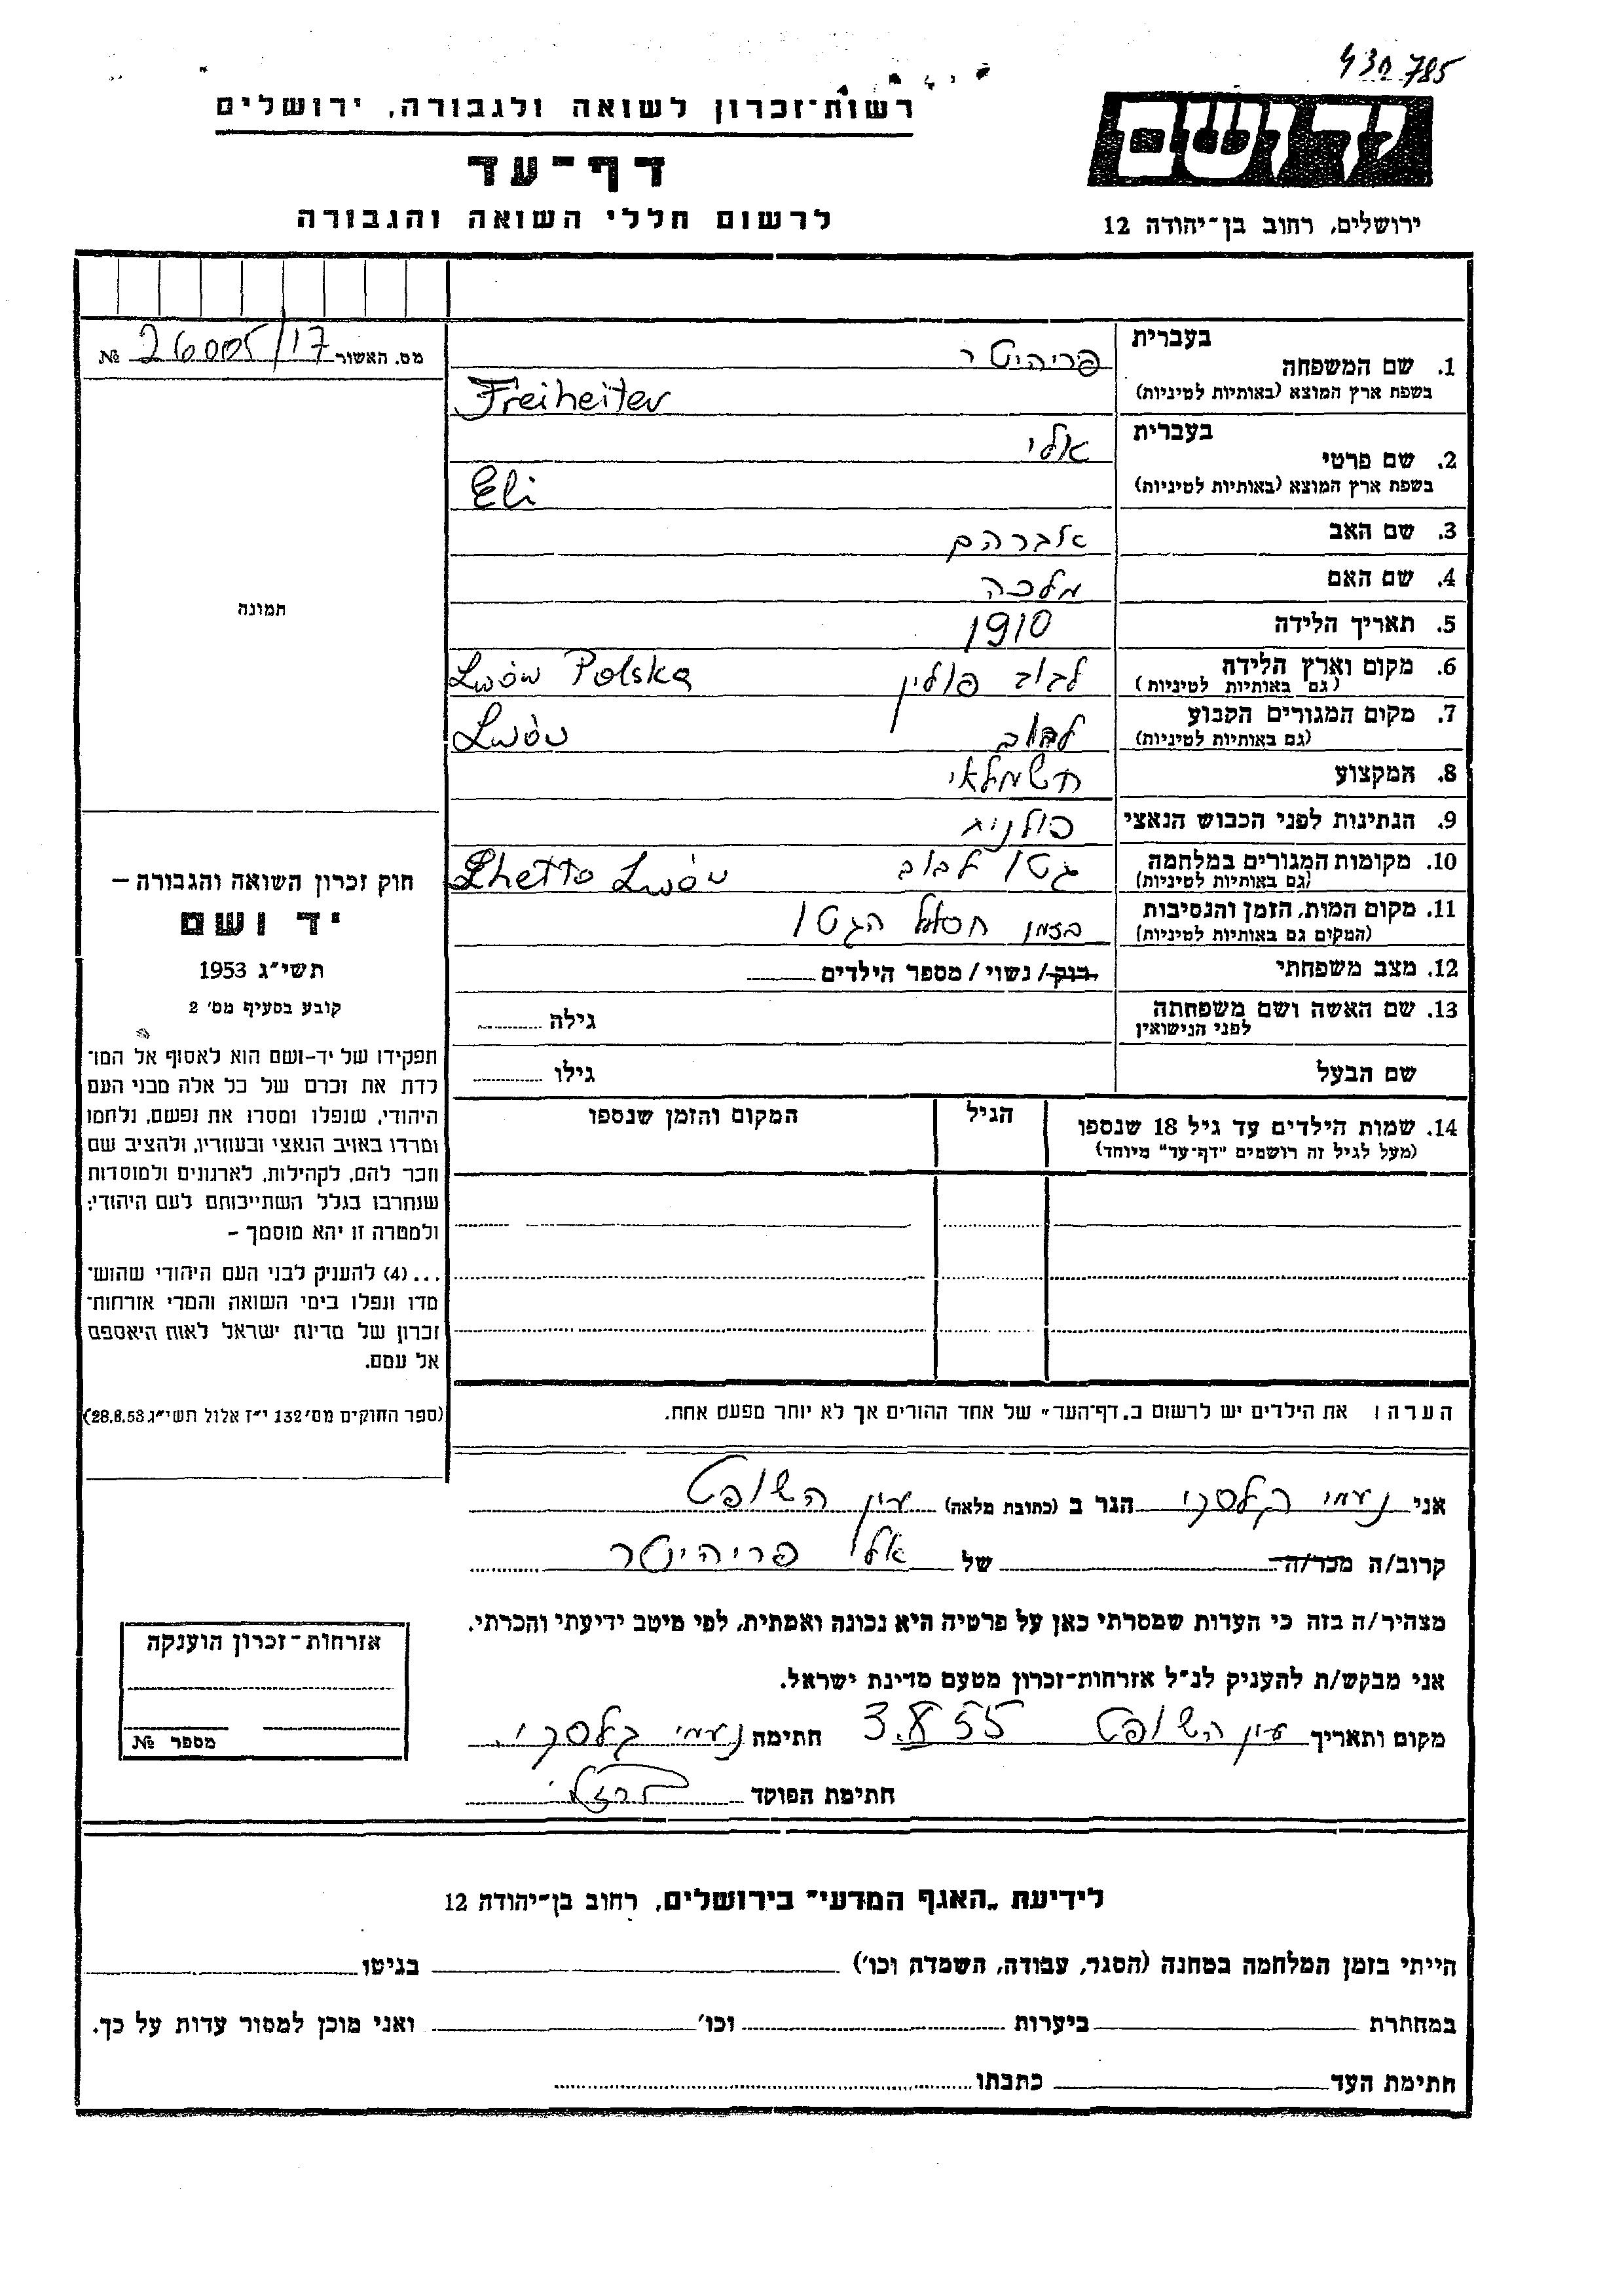 430785
רשות־זכרון לשואה ולגבורה, ירושלים
יד ושם
דף־עד
לרשום חללי השואה והגבורה
ירושלים, רחוב בן־יהודה 12
מס. האשור 26005/17 №
בעברית
1. שם המשפחה פריהיטר
בשפת ארץ המוצא (באותיות לטיניות) Freiheiter
בעברית
2. שם פרטי אלי
בשפת ארץ המוצא (באותיות לטיניות) Eli
3. שם האב אברהם
4. שם האם מלכה
5. תאריך הלידה 1910
6. מקום וארץ הלידה לבוב פולין Lwów Polska
(גם באותיות לטיניות)
7. מקום המגורים הקבוע לבוב Lwów
(גם באותיות לטיניות)
8. המקצוע חשמלאי
9. הנתינות לפני הכבוש הנאצי פולנית
10. מקומות המגורים במלחמה גטו לבוב Ghetto Lwów
(גם באותיות לטיניות)
11. מקום המות, הזמן והנסיבות בזמן חסול הגטו
(המקום גם באותיות לטיניות)
12. מצב משפחתי רוק / נשוי / מספר הילדים
13. שם האשה ושם משפחתה גילה
לפני הנישואין
שם הבעל גילו
14. שמות הילדים עד גיל 18 שנספו הגיל המקום והזמן שנספו
(מעל לגיל זה רושמים "דף־עד" מיוחד)
תמונה
חוק זכרון השואה והגבורה –
יד ושם
תשי"ג 1953
קובע בסעיף מס' 2
תפקידו של יד-ושם הוא לאסוף אל המו־
לדת את זכרם של כל אלה מבני העם
היהודי, שנפלו ומסרו את נפשם, נלחמו
ומרדו באויב הנאצי ובעוזריו, ולהציב שם
וזכר להם, לקהילות, לארגונים ולמוסדות
שנחרבו בגלל השתייכותם לעם היהודי;
ולמטרה זו יהא מוסמך –
...(4) להעניק לבני העם היהודי שהוש־
מדו ונפלו בימי השואה והמרי אזרחות־
זכרון של מדינת ישראל לאות היאספם
אל עמם.
(ספר החוקים מס' 132 י"ז אלול תשי"ג 28.8.53)
הערה: את הילדים יש לרשום ב„דף־העד" של אחד ההורים אך לא יותר מפעם אחת.
אני נעמי בלסקי הגר ב (כתובת מלאה) עין השופט
קרוב/ה מכר/ה של אלי פריהיטר
מצהיר/ה בזה כי העדות שמסרתי כאן על פרטיה היא נכונה ואמתית, לפי מיטב ידיעתי והכרתי.
אני מבקש/ת להעניק לנ"ל אזרחות-זכרון מטעם מדינת ישראל.
מקום ותאריך עין השופט 3.X 55 חתימה נעמי בלסקי.
חתימת הפוקד
אזרחות-זכרון הוענקה
מספר №
לידיעת „האגף המדעי" בירושלים, רחוב בן־יהודה 12
הייתי בזמן המלחמה במחנה (הסגר, עבודה, השמדה וכו') בגיטו
במחתרת ביערות וכו' ואני מוכן למסור עדות על כך.
חתימת העד כתבתו